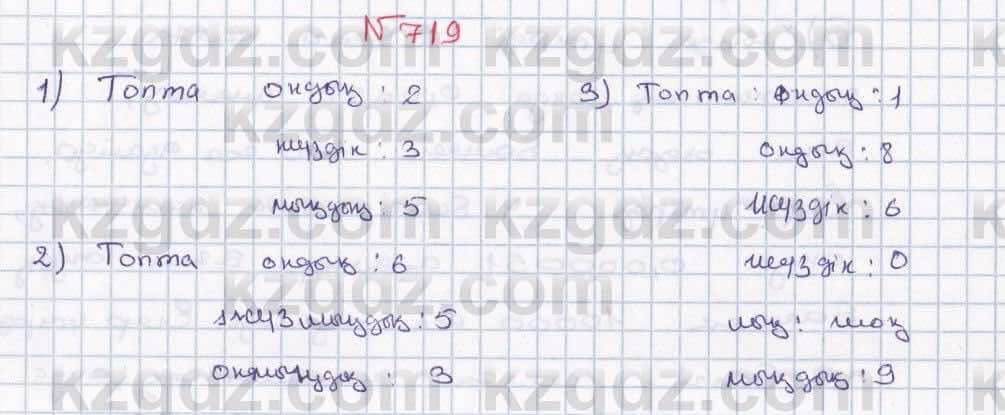 №719
1) Топта ондық : 2
жүздік : 3
мыңдық : 5
2) Топта ондық : 6
жүзмыңдық : 5
онмыңдық : 3
3) Топта : ондық : 1
ондық : 8
жүздік : 6
жүздік : 0
мың : жоқ
мыңдық : 9
kzgdz.com